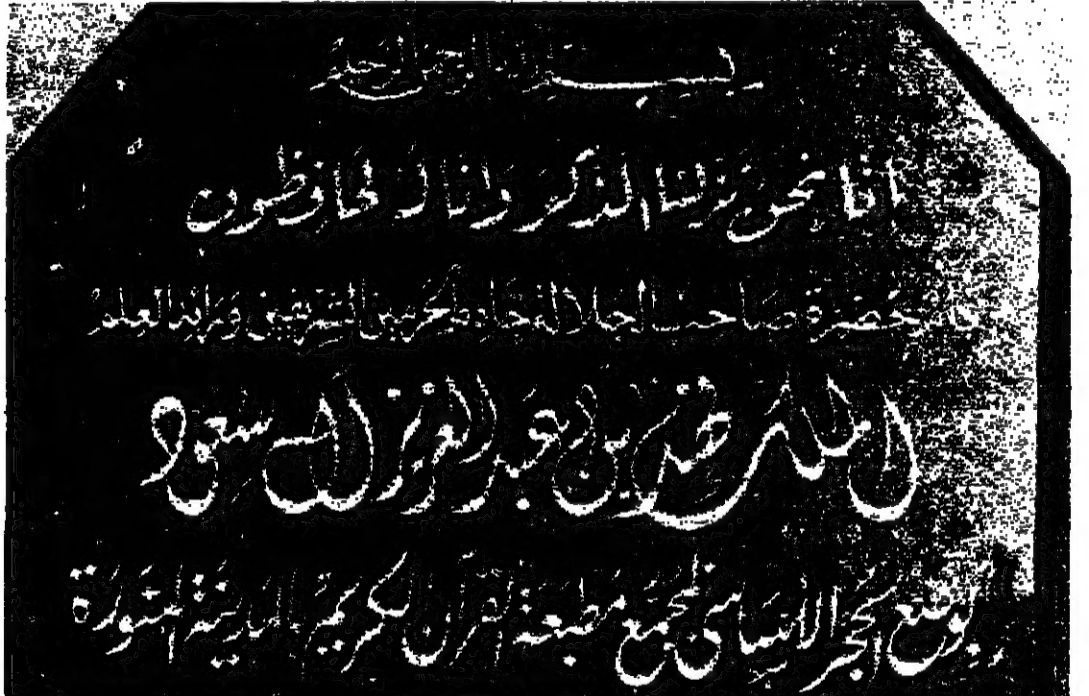 بسم الله الرحمن الرحيم
انا نحن نزلنا الذكر وانا له لحافظون
حضرة صاحب الجلالة خادم الحرمين الشريفين ورائد العلم
الملك فهد بن عبد العزيز آل سعود
بوضع الحجر الأساسي لمجمع مطبعة القرآن الكريم بالمدينة المنورة